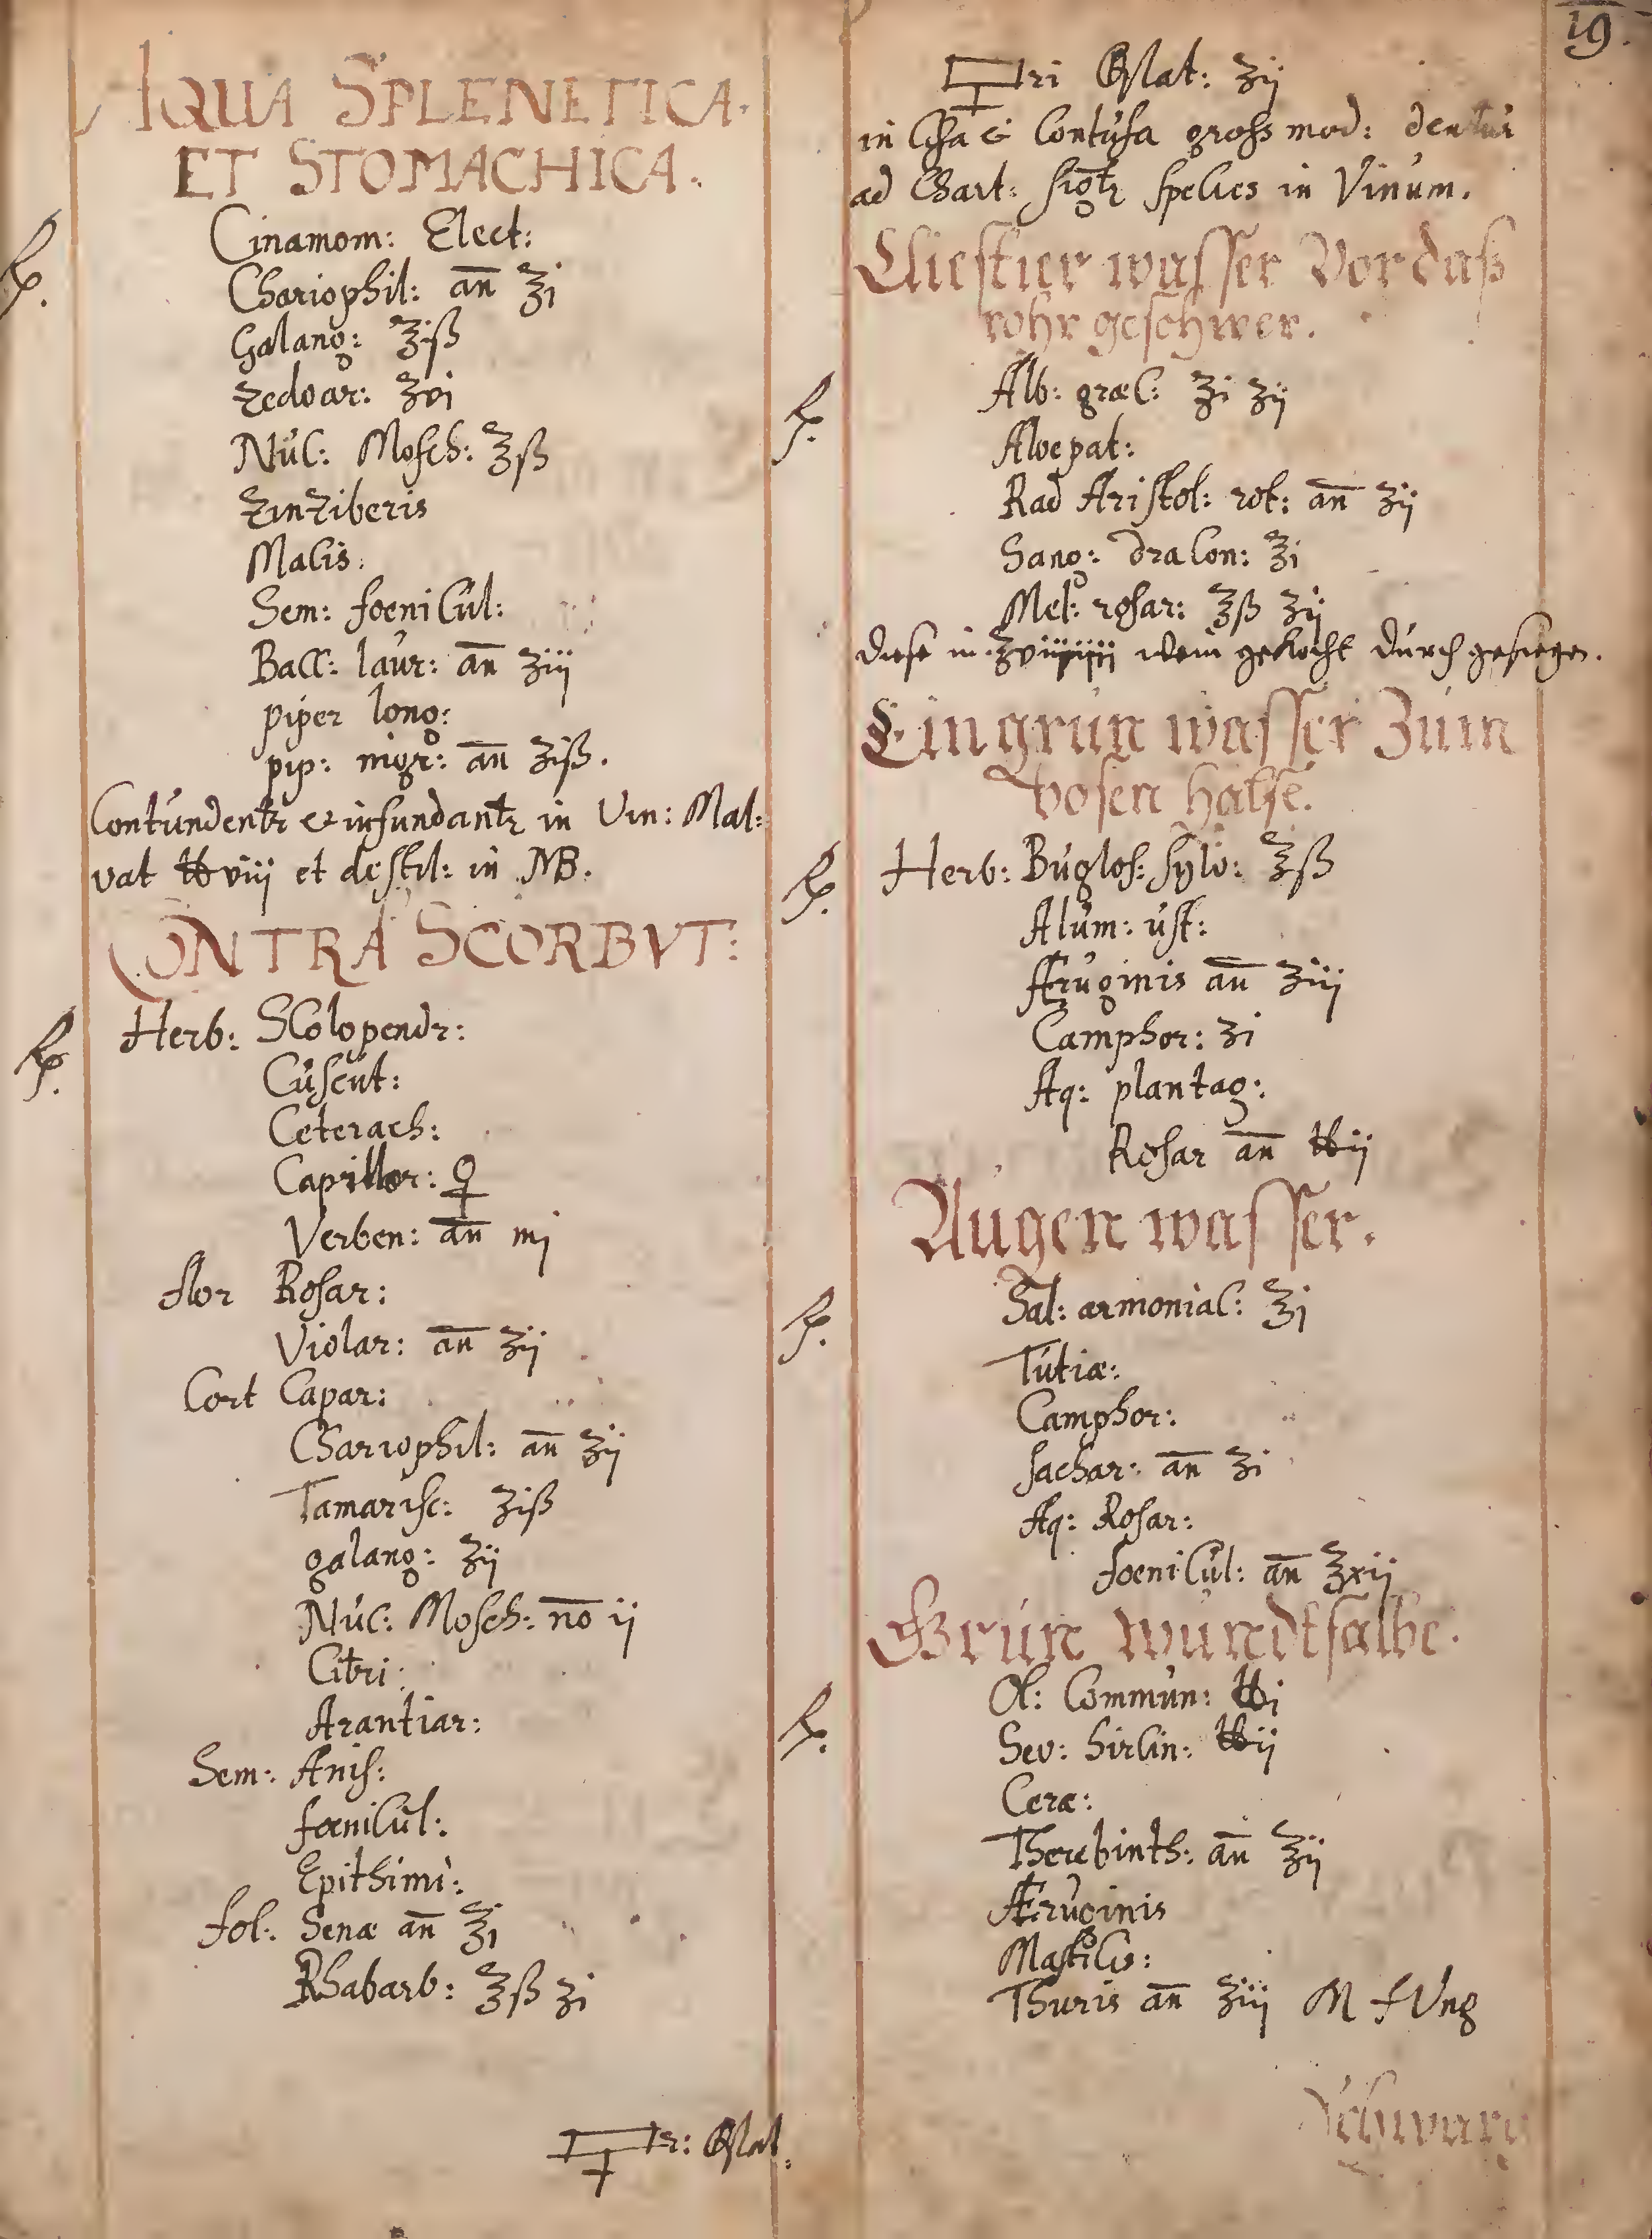 19.
AQUA SPLENETICA.
ET STOMACHICA.
℞. Cinamom: Elect:
Chariophil: an̄ ℥i
Galang: ℥iß
Zedoar: ʒvi
Nuc: Mosch: ℥ß
Zinziberis
Macis.
Sem: foenicul:
Bacc: laur: an̄ ʒiij
piper long:
pip: nigr: an̄ ʒiß.
Contundentr & infundantr in Vin: Mal:
vat ℔viij et destil: in MB.
CONTRA SCORBVT:
℞. Herb: Scolopendr:
Cuscut:
Ceterach:
Capillor: ♀
Verben: an̄ mj
flor Rosar:
Violar: an̄ ʒij
Cort Capar:
Chariophil: an̄ ʒij
Tamarisc: ʒiß
galang: ʒij
Nuc: Mosch: no ij
Citri:
Arantiar:
Sem: Anis:
foenicul:
Epithimi:
fol: Senæ an̄ ℥i
Rhabarb: ℥ß ʒi
🜿r: Θlat:
🜿ri Θlat: ʒij
in Cisa & Contusa gross mod: dentur
ad Chart: sigtr species in Vinum.
Cliestier wasser Vor daß
rohr geschwer.
℞. Alb: græc: ℥i ʒij
Aloepat:
Rad Aristol: rot: an̄ ʒij
Sang: dracon: ℥i
Mel: rosar: ℥ß ʒij
diese in wein gekocht durch gesiegen.
Ein grün wasser Zum
bosen halse.
℞. Herb: Buglos: sylv: ℥ß
Alum: ust:
Æruginis an̄ ʒiij
Camphor: ʒi
Aq: plantag:
Rosar an̄ ℔ij
Augen wasser.
℞. Sal: armoniac: ℥j
Tutiæ:
Camphor:
sachar: an̄ ʒi
Aq: Rosar:
foenicul: an̄ ℥xij
Grün wundtsalbe.
℞. Ol: Commun: ℔i
Sev: hircin: ℔ij
Ceræ:
Therebinth: an̄ ℥ij
Æruginis
Mastics:
Thuris an̄ ʒiij M f Ung
Schwarz